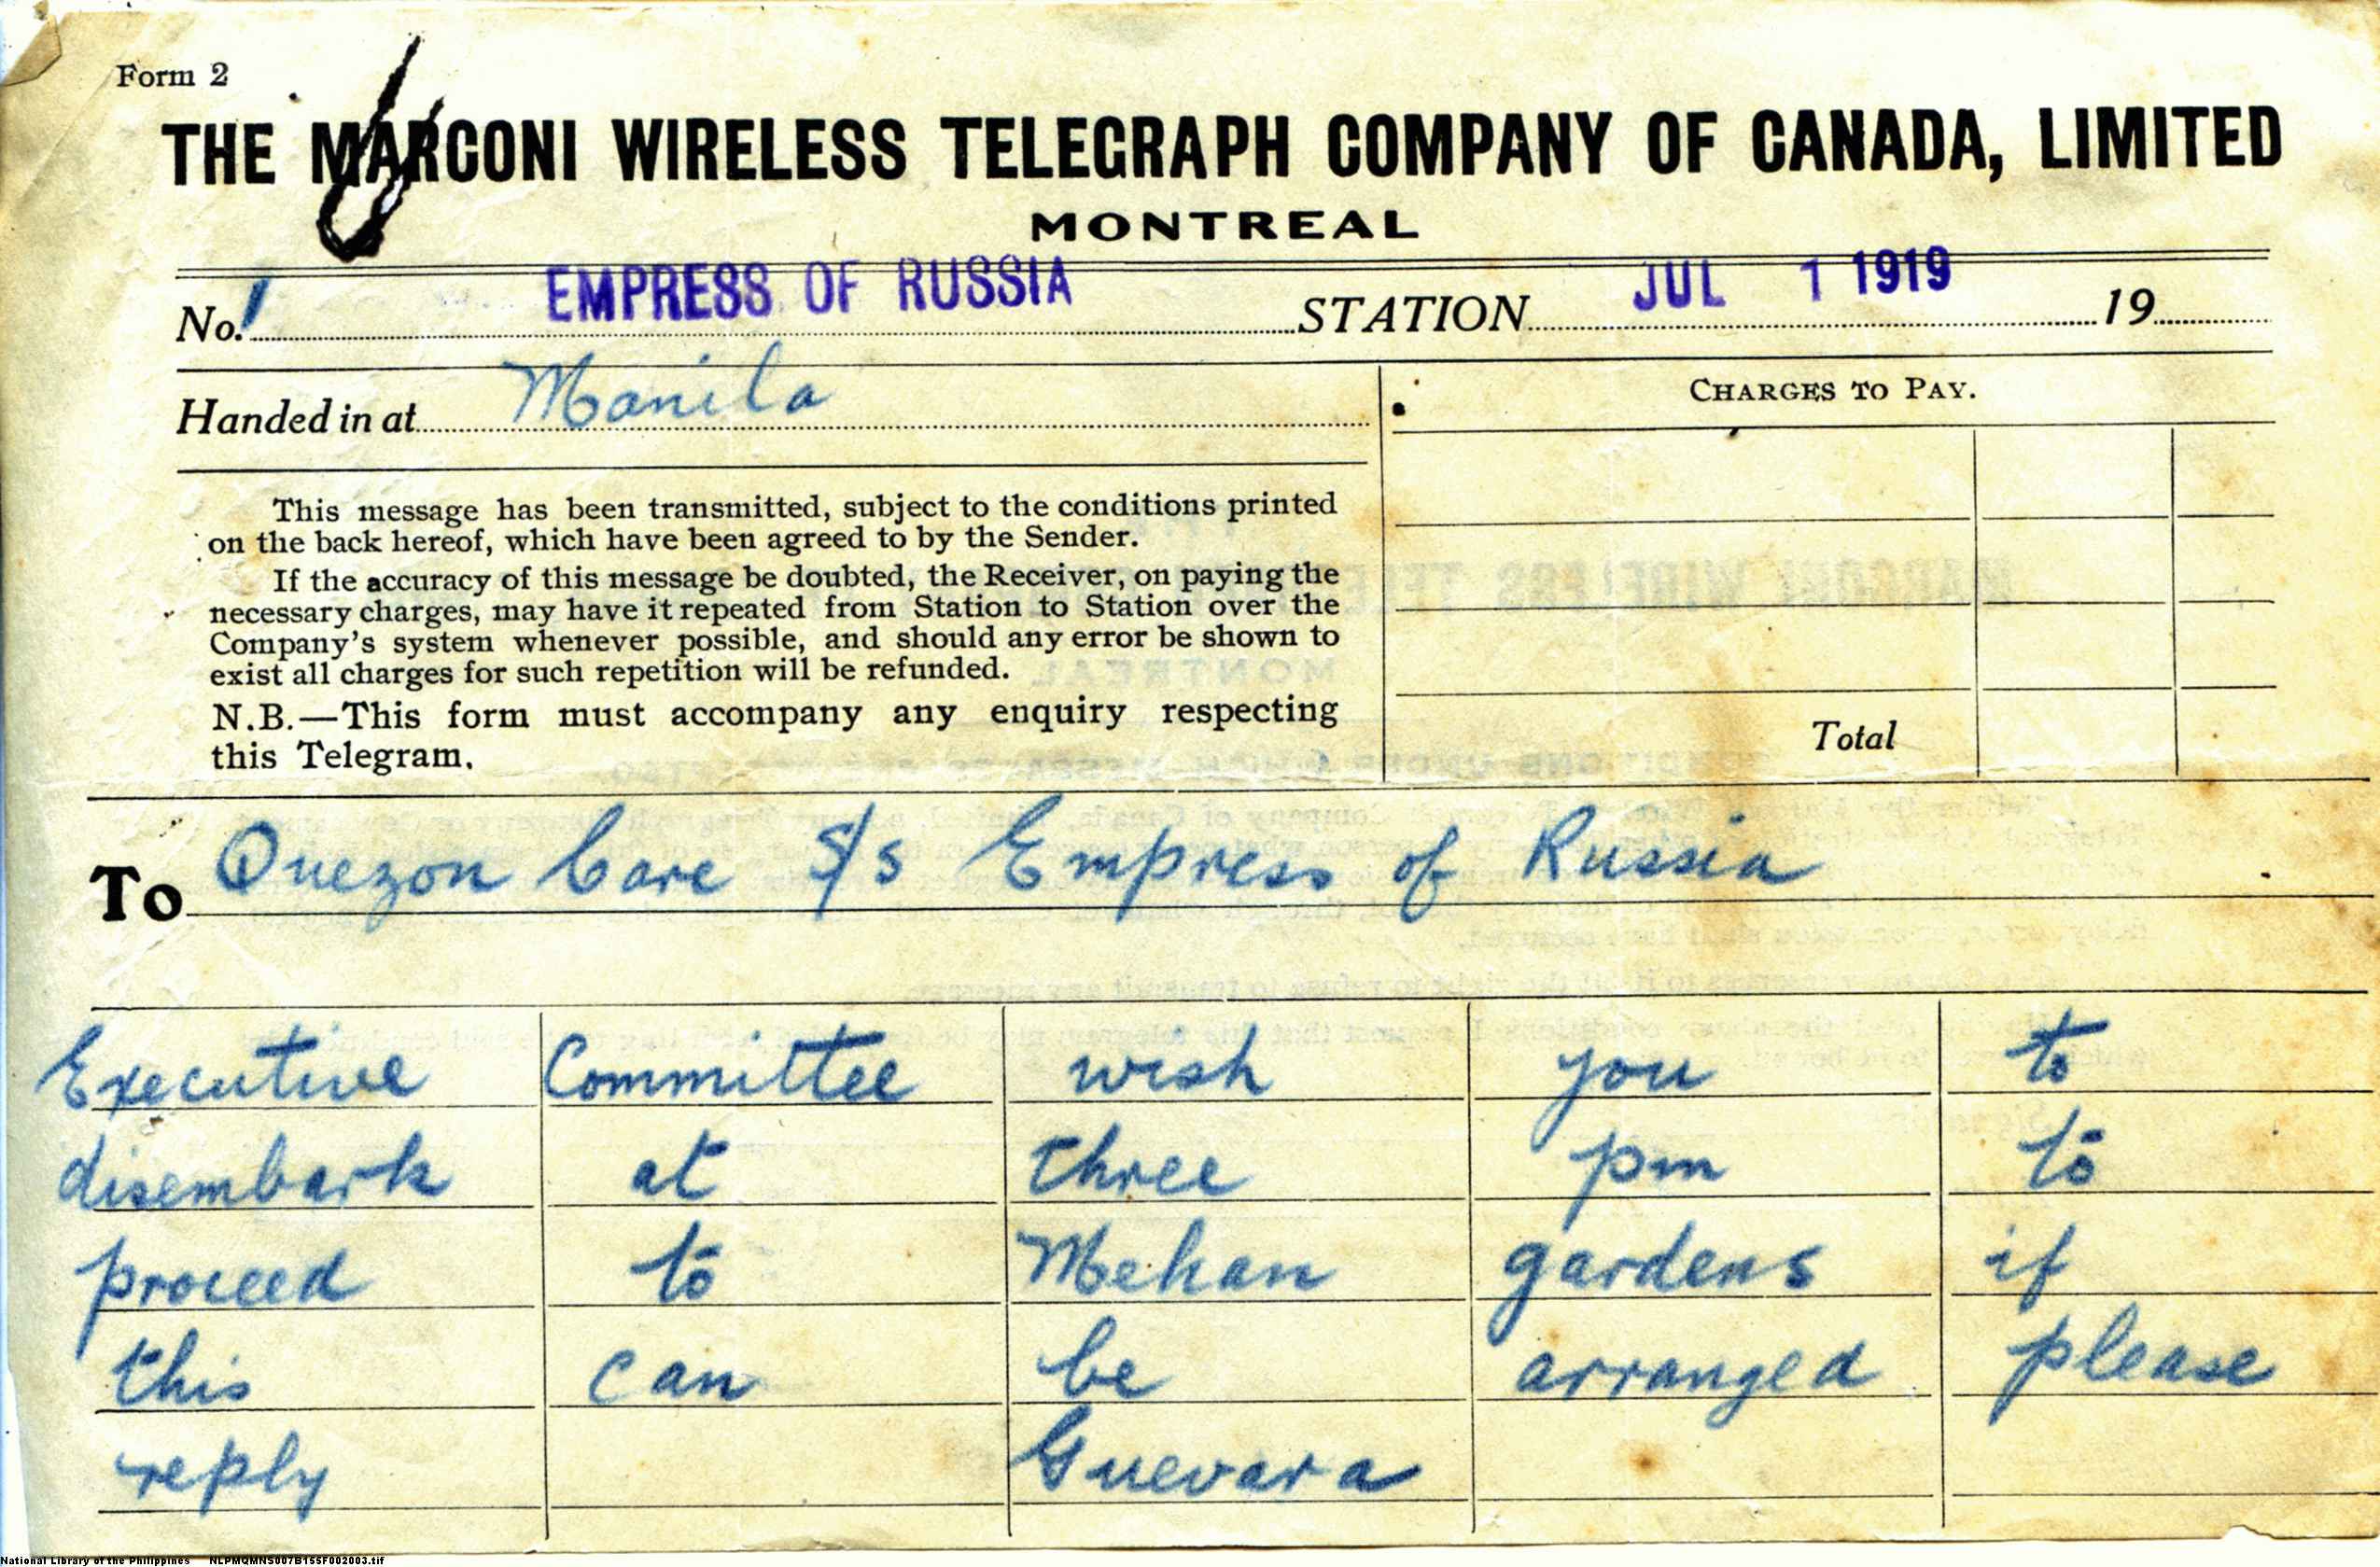 Form 2
THE MARCONI WIRELESS TELEGRAPH COMPANY OF CANADA, LIMITED
MONTREAL
No. 1 EMPRESS OF RUSSIA STATION JUL 1 1919 19
Handed in at Manila
CHARGES TO PAY.
This message has been transmitted, subject to the conditions printed
on the back hereof, which have been agreed to by the Sender.
If the accuracy of this message be doubted, the Receiver, on paying the
necessary charges, may have it repeated from Station to Station over the
Company's system whenever possible, and should any error be shown to
exist all charges for such repetition will be refunded.
N.B.—This form must accompany any enquiry respecting
this Telegram.
Total
To Quezon Care S/s Empress of Russia
Executive Committee wish you to
disembark at three pm to
proceed to Mehan gardens if
this can be arranged please
reply Guevara
National Library of the Philippines NLPMQMNS007B155F002003.tif